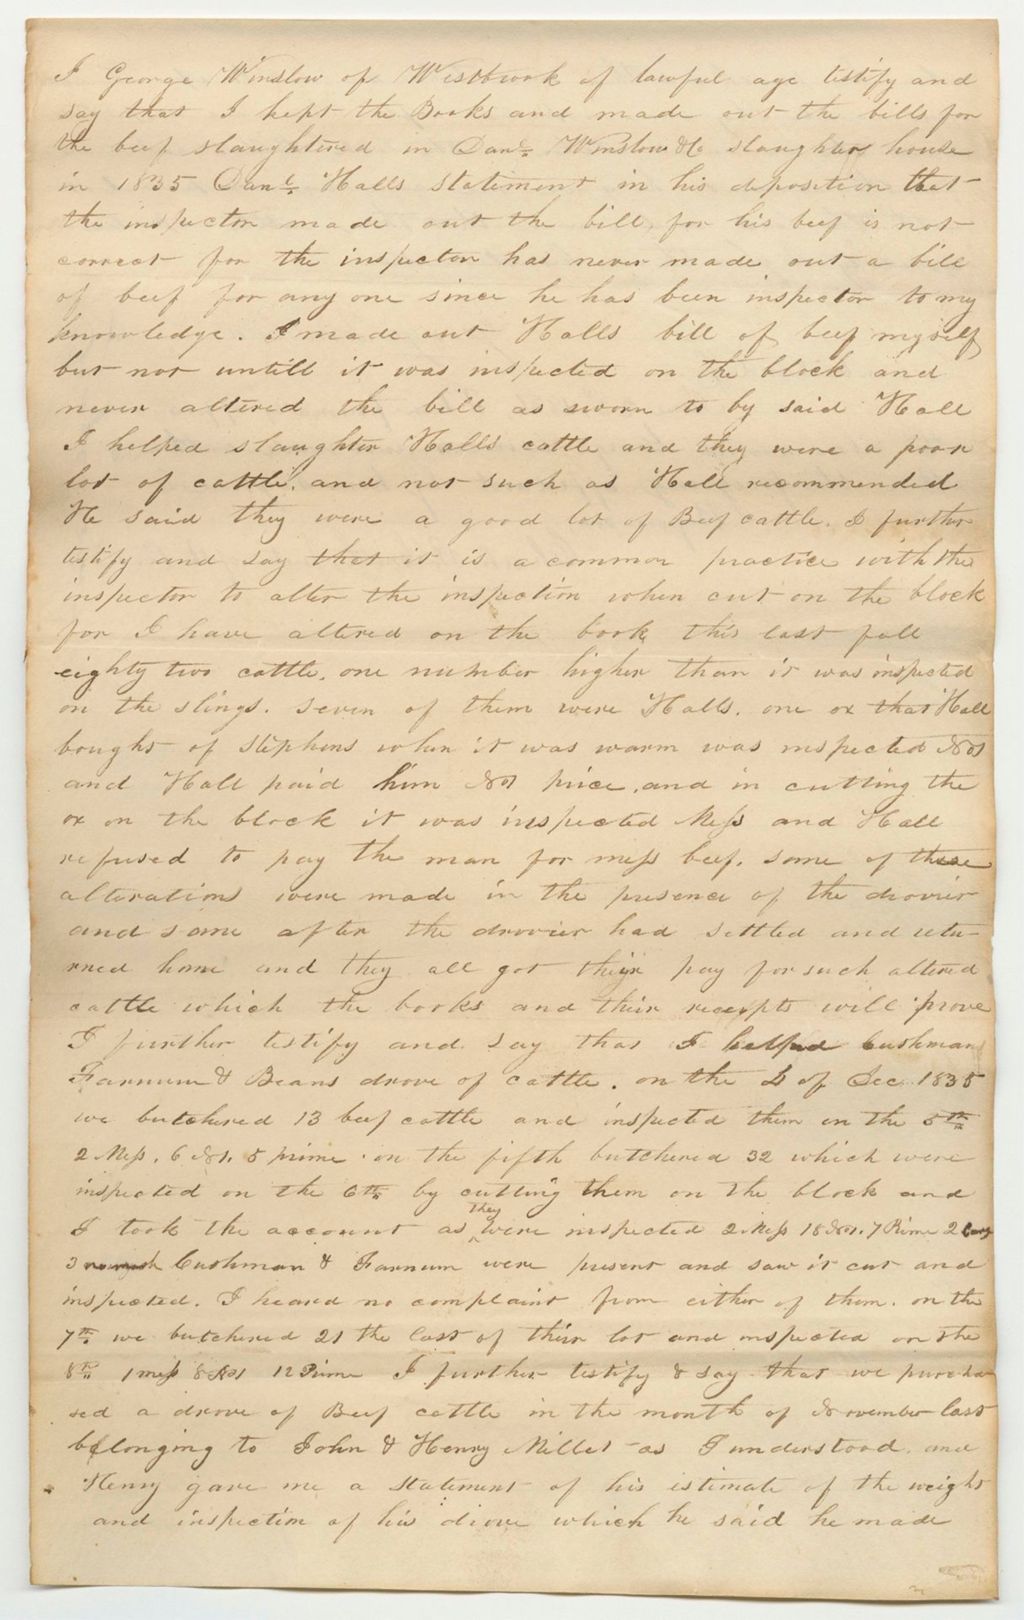 I George Winslow of Westbrook of lawful age testify and
say that I kept the Books and made out the bills for
the beef slaughtered in Danl. Winslow & Co slaughter house
in 1835 Danl. Halls statement in his deposition that
the inspector made out the bill for his beef is not
correct for the inspector has never made out a bill
of beef for any one since he has been inspector to my
knowledge. I made out Halls bill of beef myself
but not untill it was inspected on the block and
never altered the bill as sworn to by said Hall
I helped slaughter Halls cattle and they were a poor
lot of cattle, and not such as Hall recommended
He said they were a good lot of Beef cattle. I further
testify and say that it is a common practice with the
inspector to alter the inspection when cut on the block
for I have altered on the book this last fall
eighty two cattle, one number higher than it was inspected
on the slings. seven of them were Halls. one ox that Hall
bought of Stephens when it was warm was inspected No1
and Hall paid him No1 price, and in cutting the
ox on the block it was inspected Mess and Hall
refused to pay the man for mess beef. some of these
alterations were made in the presence of the drovier
and some after the drovier had settled and retu-
rned home and they all got their pay for such altered
cattle which the books and their receipts will prove
I further testify and say that I helped Cushman
Farnum & Beans drove of cattle. on the 4 of Dec 1835
we butchered 13 beef cattle and inspected them on the 5th
2 Mess. 6 No1. 5 prime. on the fifth butchered 32 which were
inspected on the 6th by cutting them on the block and
I took the account as they were inspected 2 Mess 18 No1. 7 Prime 2
3 Cushman & Farnum were present and saw it cut and
inspected. I heard no complaint from either of them. on the
7th we butchered 21 the last of their lot and inspected on the
8th 1 mess 8 No1 12 Prime I further testify & say that we purcha
sed a drove of Beef cattle in the month of November last
belonging to John & Henry Miller as I understood. and
Henry gave me a statement of his estimate of the weight
and inspection of his drove which he said he made